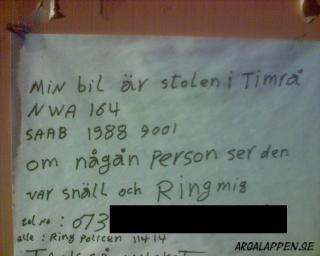 Min bil är stolen i Timrå
NWA 164
SAAB 1988 9001
om någån Person ser den
var snäll och Ring mig
tel no : 073
elle : Ring Policen 11414
ARGALAPPEN.SE